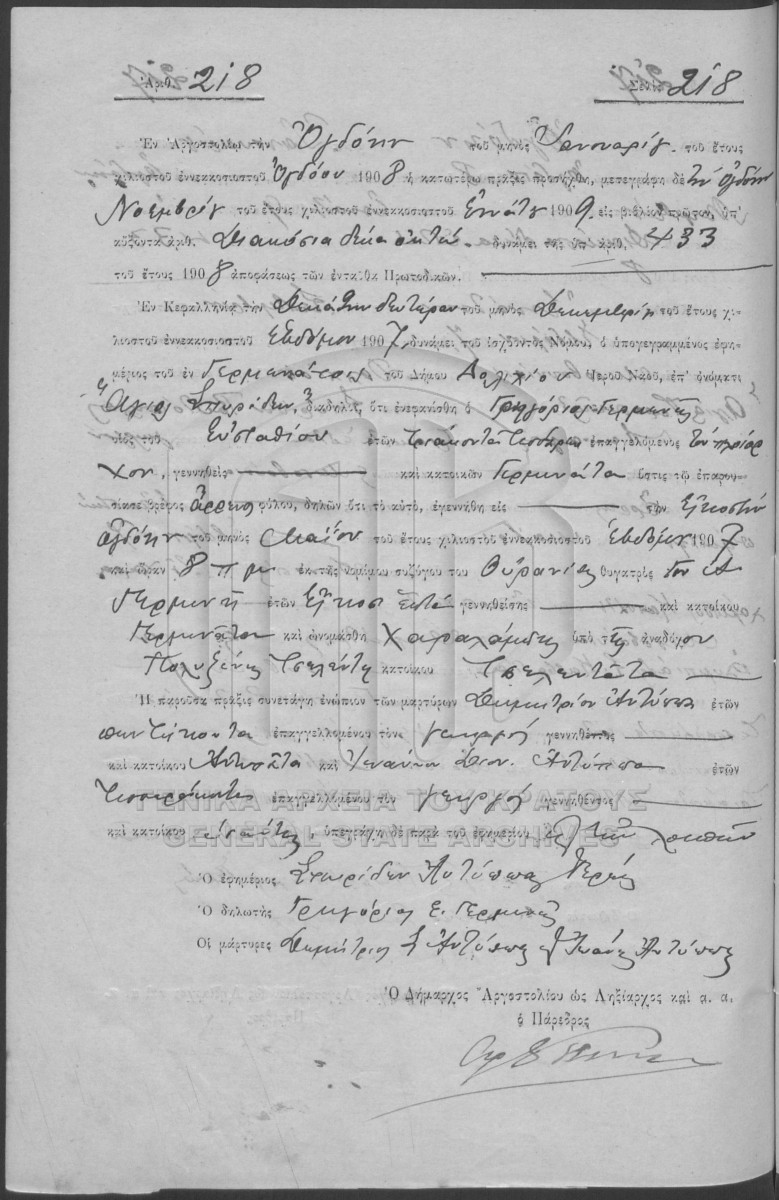 Ἀριθ. 218 Σελὶς 218
Ἐν Ἀργοστολίῳ τὴν Ὀγδόην τοῦ μηνὸς Ἰανουαρίου τοῦ ἔτους
χιλιοστοῦ ἐννεακοσιοστοῦ Ὀγδόου 1908 ἡ κατωτέρω πρᾶξις προσήχθη, μετεγράφη δὲ τὴν ὀγδόην
Νοεμβρίου τοῦ ἔτους χιλιοστοῦ ἐννεακοσιοστοῦ Ἐννάτου 1909. εἰς βιβλίον πρῶτον, ὑπ'
αὔξοντα ἀριθ. Διακόσια δέκα ὀκτώ. δυνάμει τῆς ὑπ' ἀριθ. 433
τοῦ ἔτους 1908 ἀποφάσεως τῶν ἐνταῦθα Πρωτοδικῶν.
Ἐν Κεφαλληνίᾳ τὴν Δεκάτην δευτέραν τοῦ μηνὸς Δεκεμβρίου τοῦ ἔτους χι-
λιοστοῦ ἐννεακοσιοστοῦ Ἑβδόμου 1907, δυνάμει τοῦ ἰσχύοντος Νόμου, ὁ ὑπογεγραμμένος ἐφη-
μέριος τοῦ ἐν Γερμενάτοις τοῦ Δήμου Δολιχίου Ἱεροῦ Ναοῦ, ἐπ' ὀνόματι
Ἅγιος Σπυρίδων, διαδηλοῖ, ὅτι ἐνεφανίσθη ὁ Γρηγόριος Γερμενῆς
υἱὸς τοῦ Εὐσταθίου ἐτῶν τριάκοντα τεσσάρων ἐπαγγελόμενος τὸν πλοίαρ
χον, γεννηθεὶς καὶ κατοικῶν Γερμενάτα ὅστις τῷ ἐπαρου-
σίασε βρέφος ἄρρεν φύλου, δηλῶν ὅτι τὸ αὐτὸ, ἐγεννήθη εἰς τὴν Εἰκοστὴν
ὀγδόην τοῦ μηνὸς Μαΐου τοῦ ἔτους χιλιοστοῦ ἐννεακοσιοστοῦ Ἑβδόμου 1907
καὶ ὥραν 8 π μ ἐκ τῆς νομίμου συζύγου του Οὐρανίας θυγατρὸς
Γερμενῆ ἐτῶν Εἴκοσι ἑπτὰ γεννηθείσης καὶ κατοίκου
Γερμενάτα καὶ ὠνομάσθη Χαράλαμπος ὑπὸ τῆς ἀναδόχου
Πολυξένης Τσελέντη κατοίκου Τσελεντάτα
Ἡ παροῦσα πρᾶξις συνετάγη ἐνώπιον τῶν μαρτύρων Δημητρίου Ἀντύπα ἐτῶν
πεντήκοντα ἐπαγγελλομένου τὸν γεωργὸ γεννηθέντος
καὶ κατοίκου Ἀντυπάτα καὶ Ἰωάννου Διον. Ἀντύπα ἐτῶν
Τεσσαράκοντα ἐπαγγελλομένου τὸν γεωργὸ γεννηθέντος
καὶ κατοίκου, ὑπεγράφη δὲ παρὰ τοῦ ἐφημερίου καὶ τῶν λοιπῶν
ΓΕΝΙΚΑ ΑΡΧΕΙΑ ΤΟΥ ΚΡΑΤΟΥΣ
GENERAL STATE ARCHIVES
Ὁ ἐφημέριος Σπυρίδων Ἀντύπας Ἱερεὺς
Ὁ δηλωτὴς Γρηγόριος Ε. Γερμενῆς
Οἱ μάρτυρες Δημήτριος Σ Ἀντύπας Ἰωάνης Ἀντύπας
Ὁ Δήμαρχος Ἀργοστολίου ὡς Ληξίαρχος καὶ α. α.
ὁ Πάρεδρος